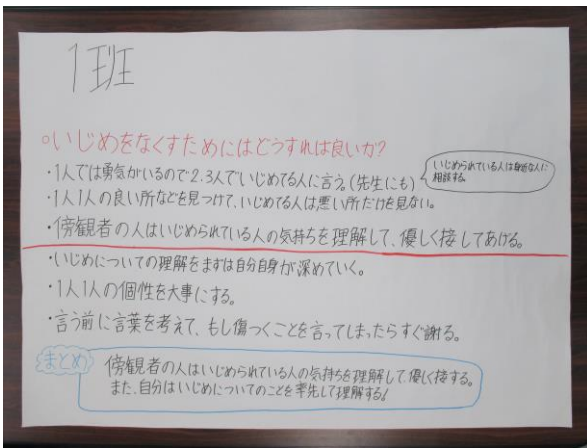 1班
○いじめをなくすためにはどうすれば良いか?
・1人では勇気がいるので2.3人でいじめてる人に言う。(先生にも)
いじめられている人は身近な人に
相談する。
・1人1人の良い所などを見つけて、いじめてる人は悪い所だけを見ない。
・傍観者の人はいじめられている人の気持ちを理解して、優しく接してあげる。
・いじめについての理解をまずは自分自身が深めていく。
・1人1人の個性を大事にする。
・言う前に言葉を考えて、もし傷つくことを言ってしまったらすぐ謝る。
まとめ
傍観者の人はいじめられている人の気持ちを理解して、優しく接する。
また、自分はいじめについてのことを率先して理解する!